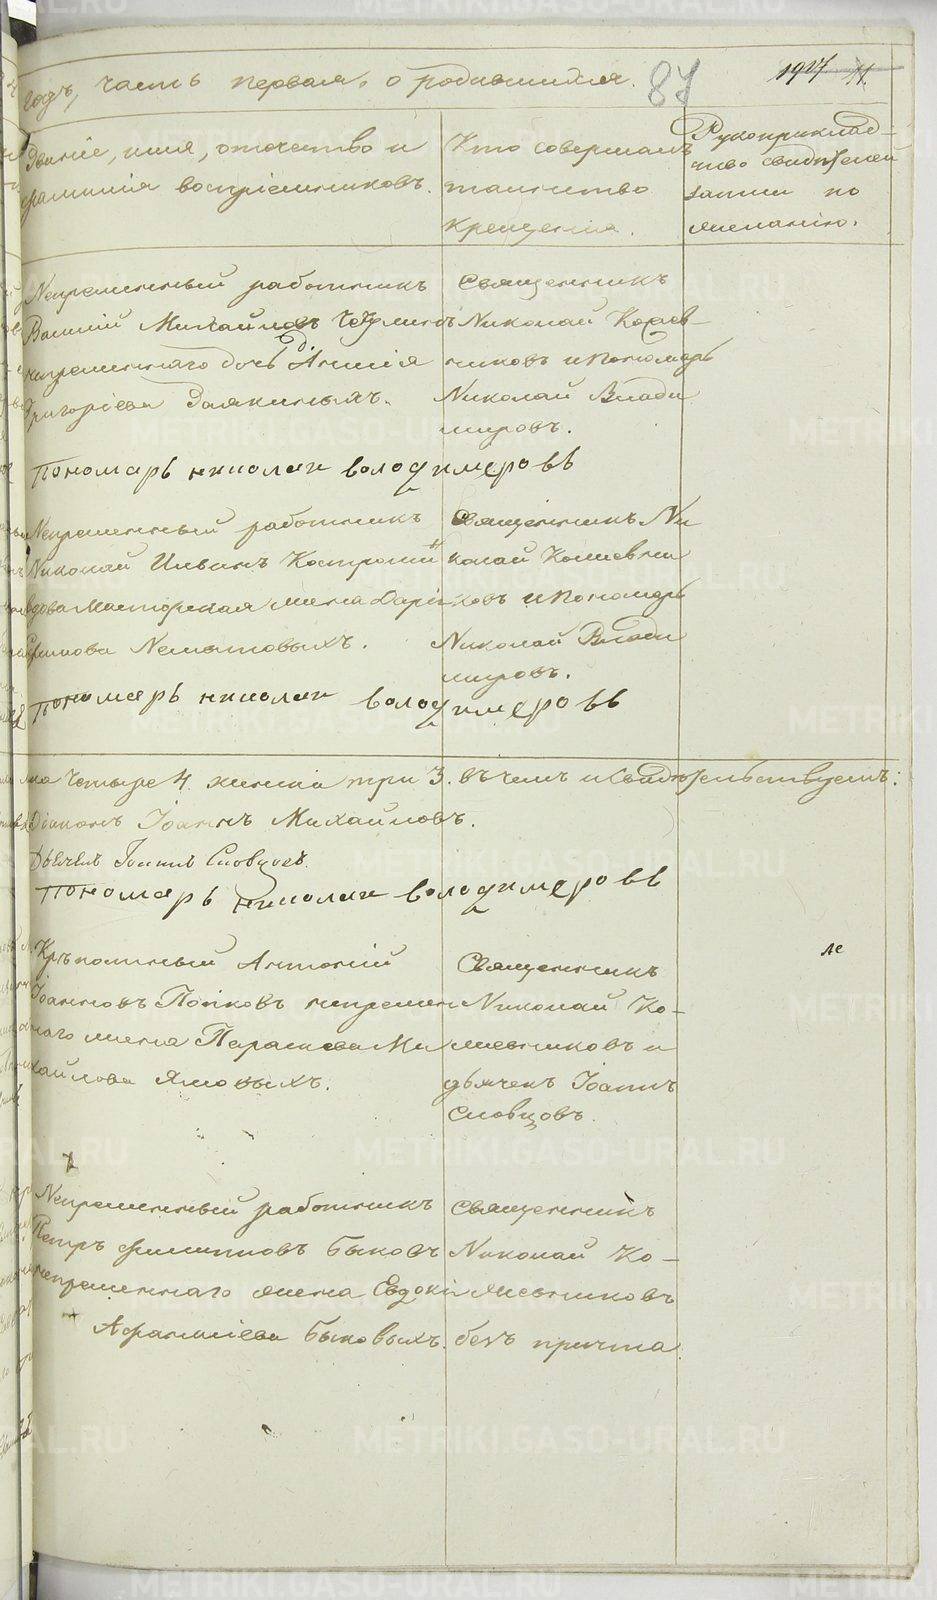 годъ, часть первая, о родившихся. 87 1917 11.
Званіе, имя, отчество и
фамилія воспріемниковъ.
Кто совершалъ
таинство
крещенія.
Рукоприклад-
ство свидѣтелей
записи по
желанію.
Непременный работникъ
Василій Михайловъ
непременнаго дочь Анисія
Григоріева Заякиныхъ.
Священникъ
Николай
никовъ и Пономарь
Николай Влади
мировъ.
Пономарь николаи володимеровъ
Непременный работникъ
Николай Ильинъ Костромин
вдова Мастерская жена Дарья
Неманновыхъ.
Священникъ Ни
колай Комевни
ковъ и Пономарь
Николай Влади
мировъ.
Пономарь николаи володимеровъ
Четыре 4 женска три 3. въ чемъ и Свидѣтельствуемъ:
Діаконъ Іоаннъ Михайловъ.
Дьячекъ Іоаннъ Словцовъ.
Пономарь николаи володимеровъ
Крѣпостный Антоній
Іоанновъ Попковъ непремен
наго жена Параскева Ми
хайлова Ямовыхъ.
Священникъ
Николай Ко-
мевниковъ и
дьячекъ Іоаннъ
Словцовъ.
Непременный работникъ
Петръ Филипповъ Быковъ
непременнаго жена Евдокі
Афанасіева Быковыхъ.
Священникъ
Николай Ко-
мевниковъ
безъ причта.
METRIKI.GASO-URAL.RU